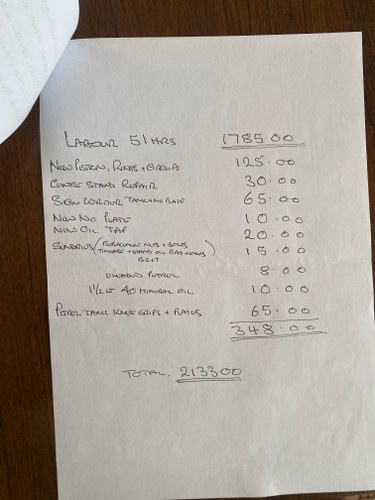 LABOUR 51 HRS 1785.00
NEW PISTON, RINGS + CIRCLIPS 125.00
CENTRE STAND REPAIR 30.00
SIGN WRITER TANK + NO PLATE 65.00
NEW NO PLATE 10.00
NEW OIL TAP 20.00
SUNDRIES ( NUTS + BOLTS 15.00
+ STAND OIL
BS+T
UNLEADED PETROL 8.00
1 1/2 LT 40 MINERAL OIL 10.00
PETROL TANK KNEE GRIPS + PLATES 65.00
348.00
TOTAL. 2133.00